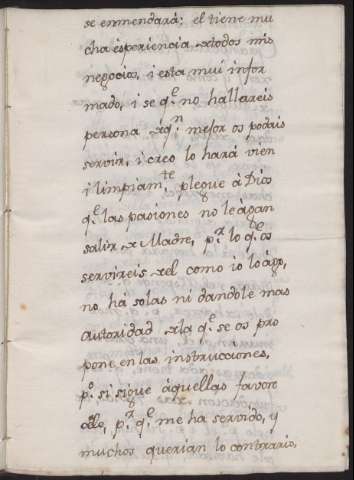 se enmendará; el tiene mu
cha esperiencia xtodos mis
negocios, i esta mui infor
mado, i se q.^e no hallareis
persona xq.^n mejor os podais
servir, i creo lo hará vien
i limpiam.^te plegue á Dios
q.^e las pasiones no le ágan
salir x Madre, p.^r lo q.^e os
servireis xel como io lo ágo,
no há solas ni dandole mas
autoridad xla q.^e se os pro
pone en las instrucciones,
p.^o si sigue áquellas favore
p.^r q.^e me ha servido, y
muchos querian lo contrario,